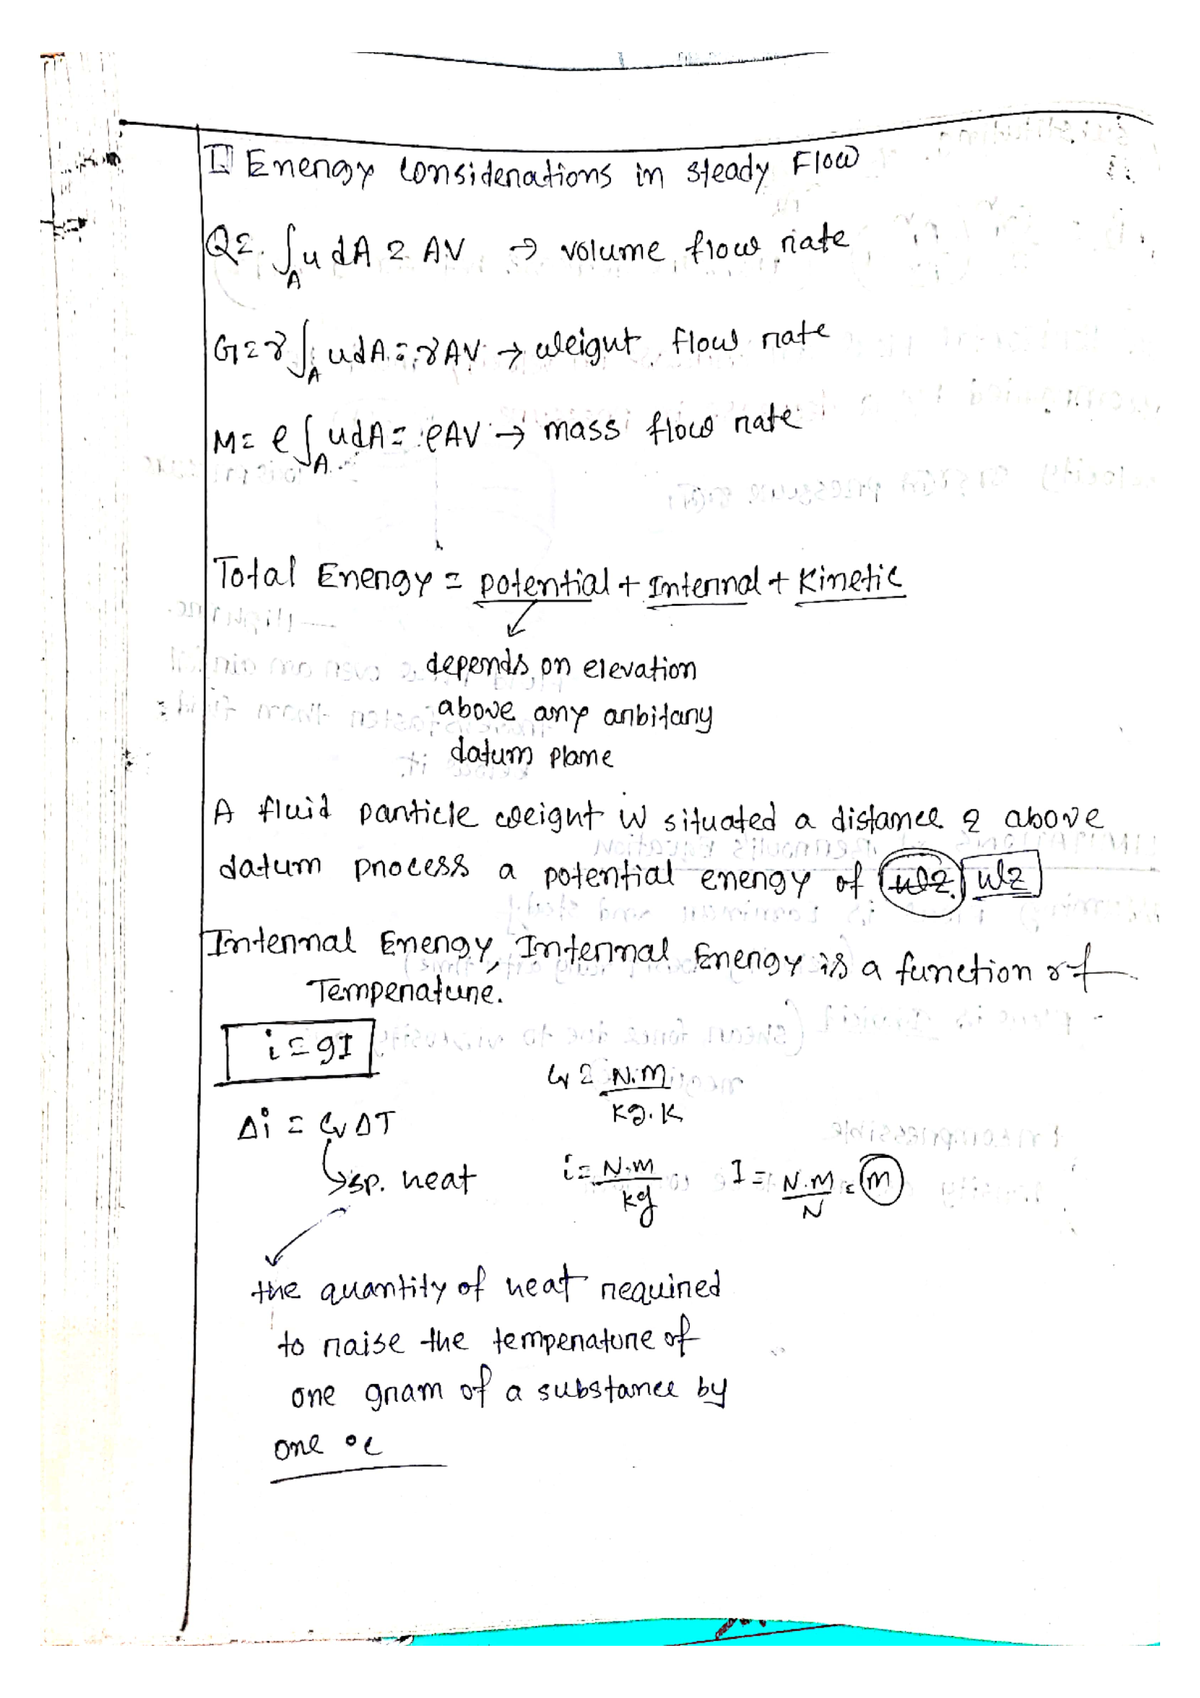 Energy Considerations in steady Flow
Q = ∫_A u dA = AV → volume flow rate
G = γ ∫_A u dA = γAV → weight flow rate
M = ρ ∫_A u dA = ρAV → mass flow rate
Total Energy = potential + Internal + Kinetic
depends on elevation
above any arbitary
datum plane
A fluid particle weight W situated a distance z above
datum process a potential energy of Wz Wz
Internal Energy, Internal Energy is a function of
Temperature.
i = gI
Cv = N.m / kg.K
Δi = Cv ΔT
sp. heat
i = N.m / kg I = N.m / N = m
the quantity of heat required
to raise the temperature of
one gram of a substance by
one °c